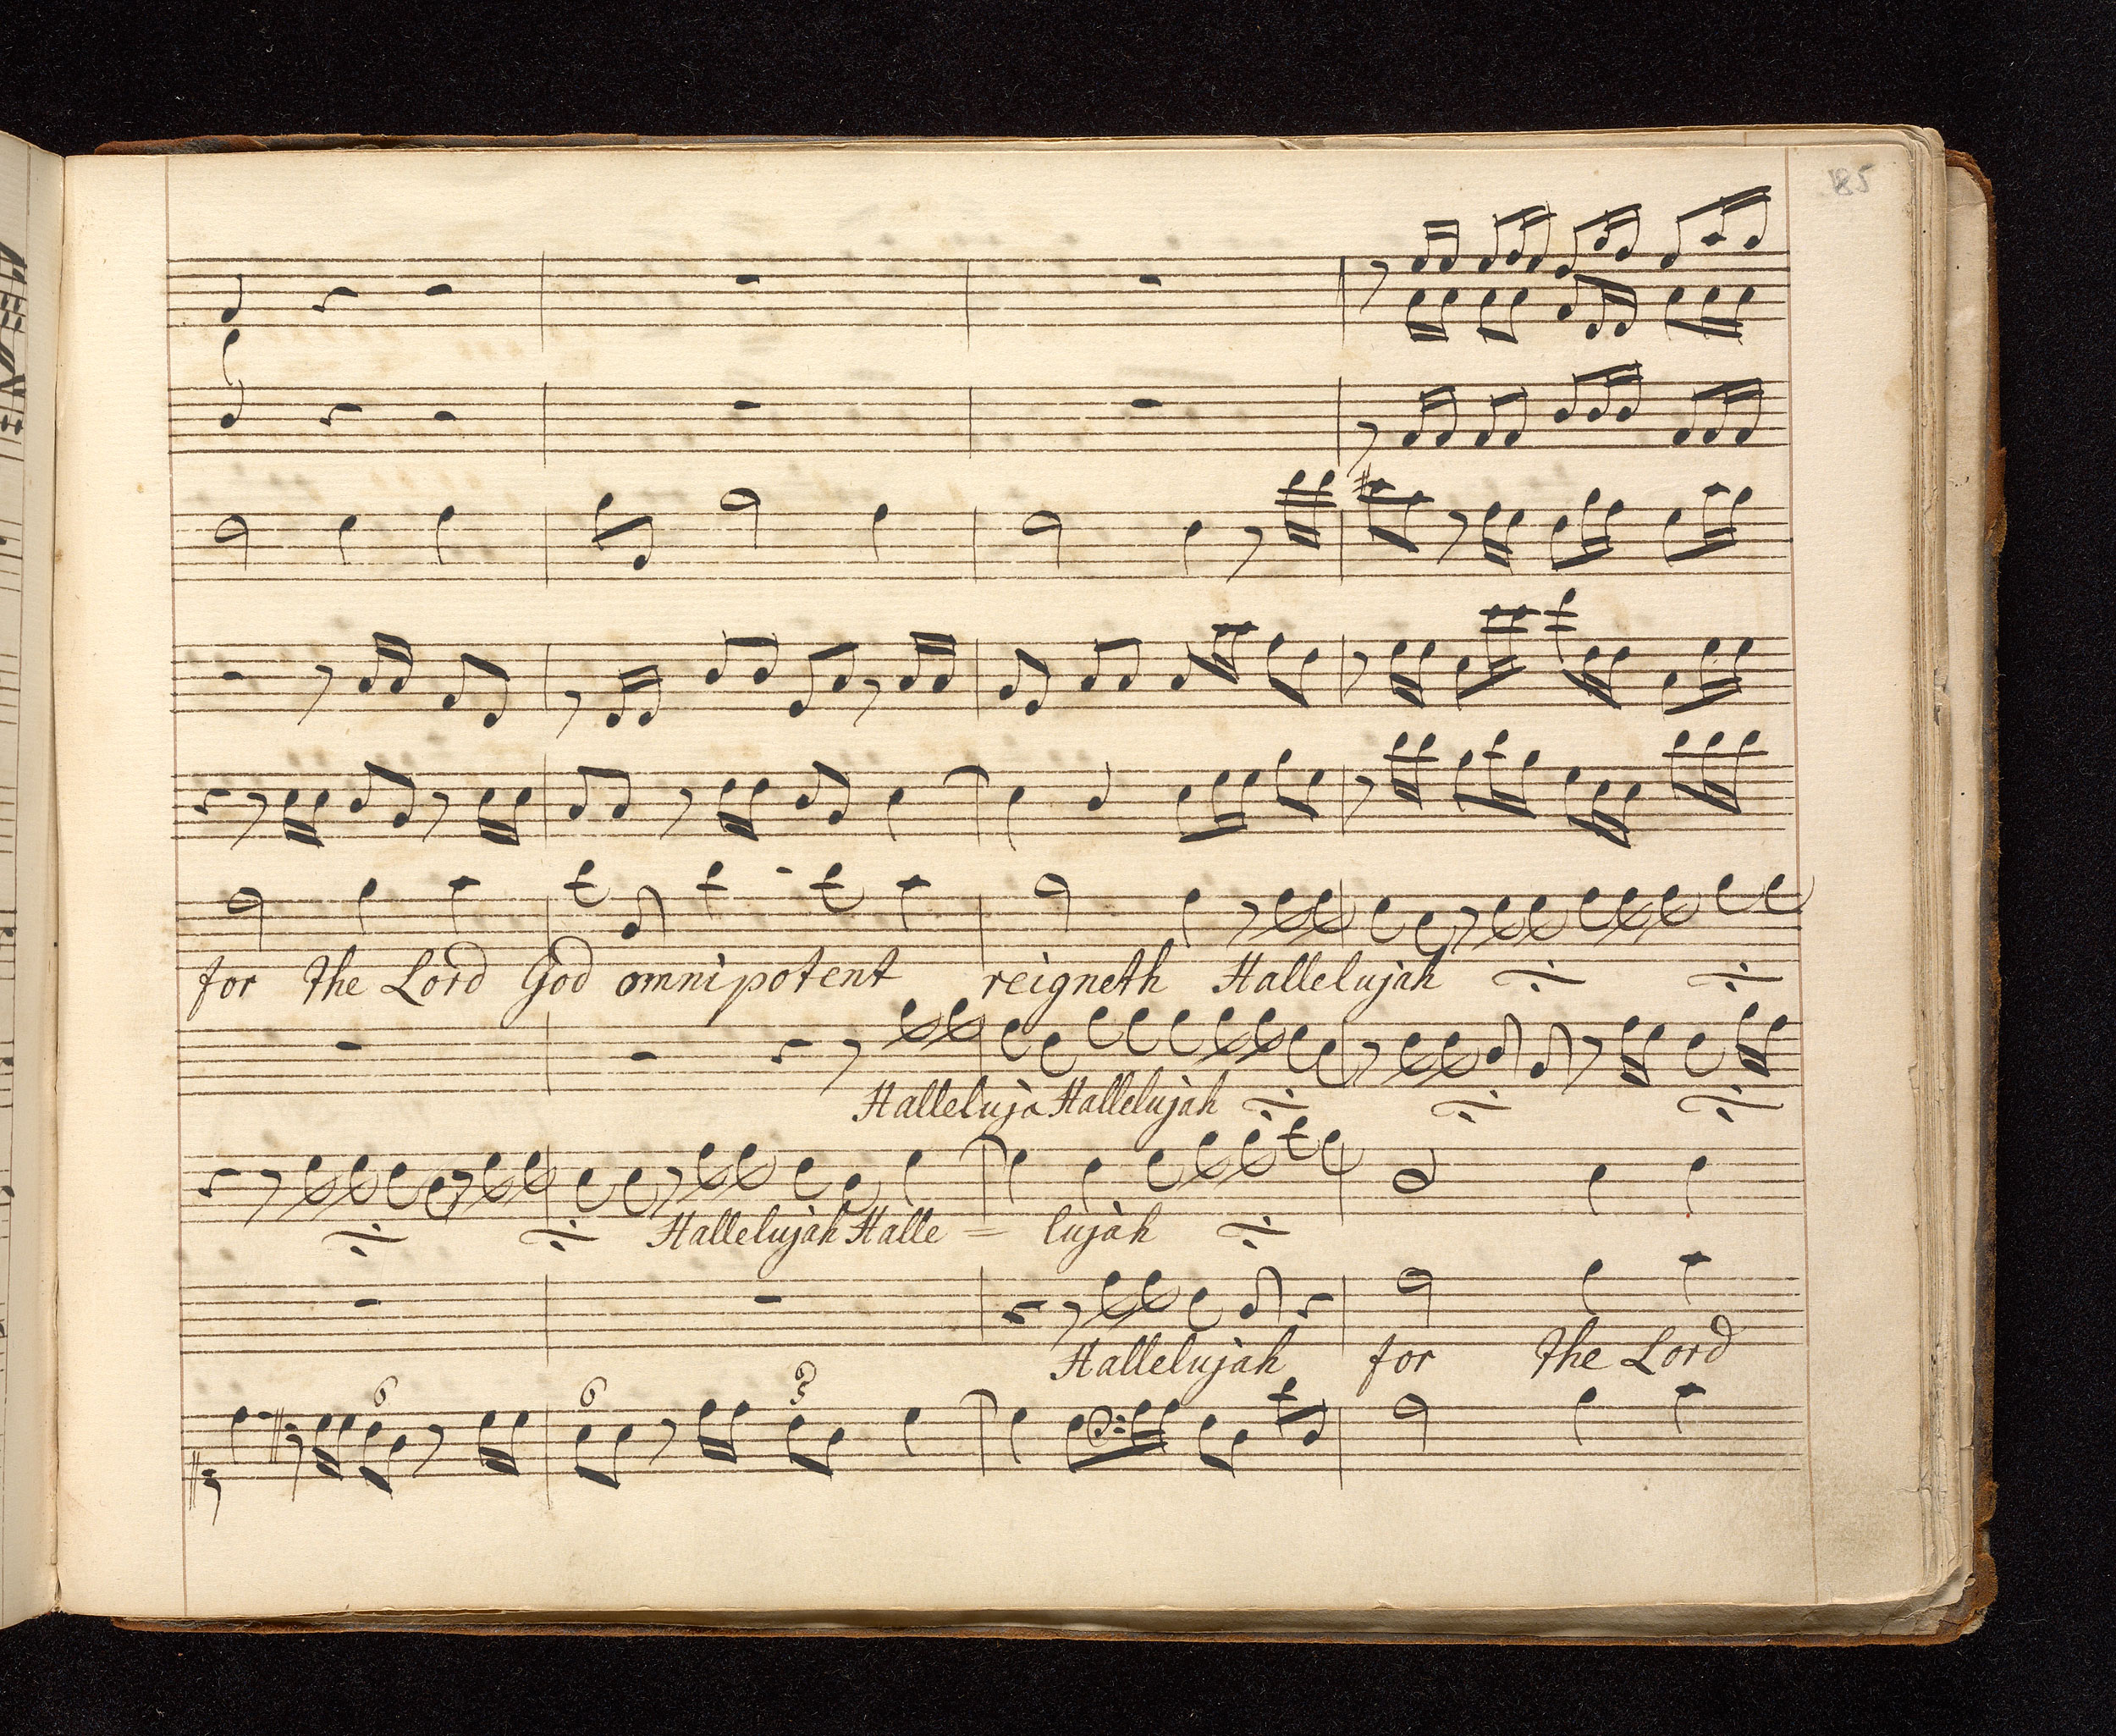 185
for the Lord God omnipotent reigneth Hallelujah
Halleluja Hallelujah
Hallelujah Halle = lujah
Hallelujah for the Lord
6 6